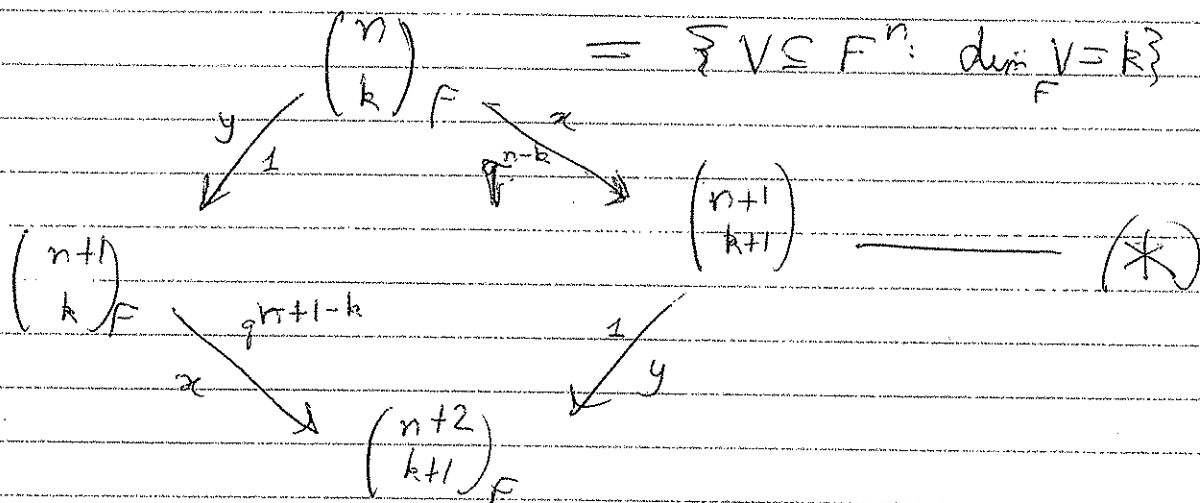 (n k)_F = { V ⊆ F^n : dim_F V = k }
y 1 q^{n-k} x
(n+1 k+1) ——— (*)
(n+1 k)_F
x q^{n+1-k} 1 y
(n+2 k+1)_F